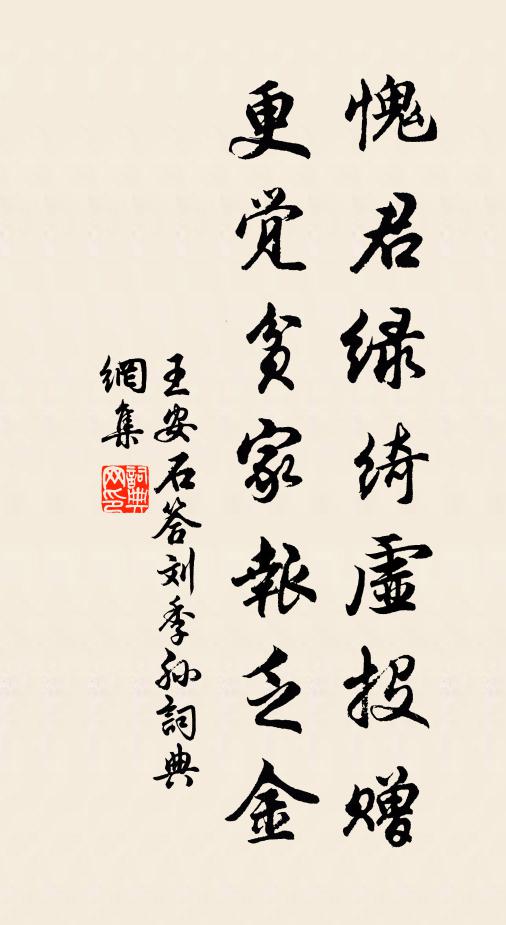 愧君绿绮虚投赠
更觉贫家报乏金
王安石答刘季孙词典
網集
詞典
网印